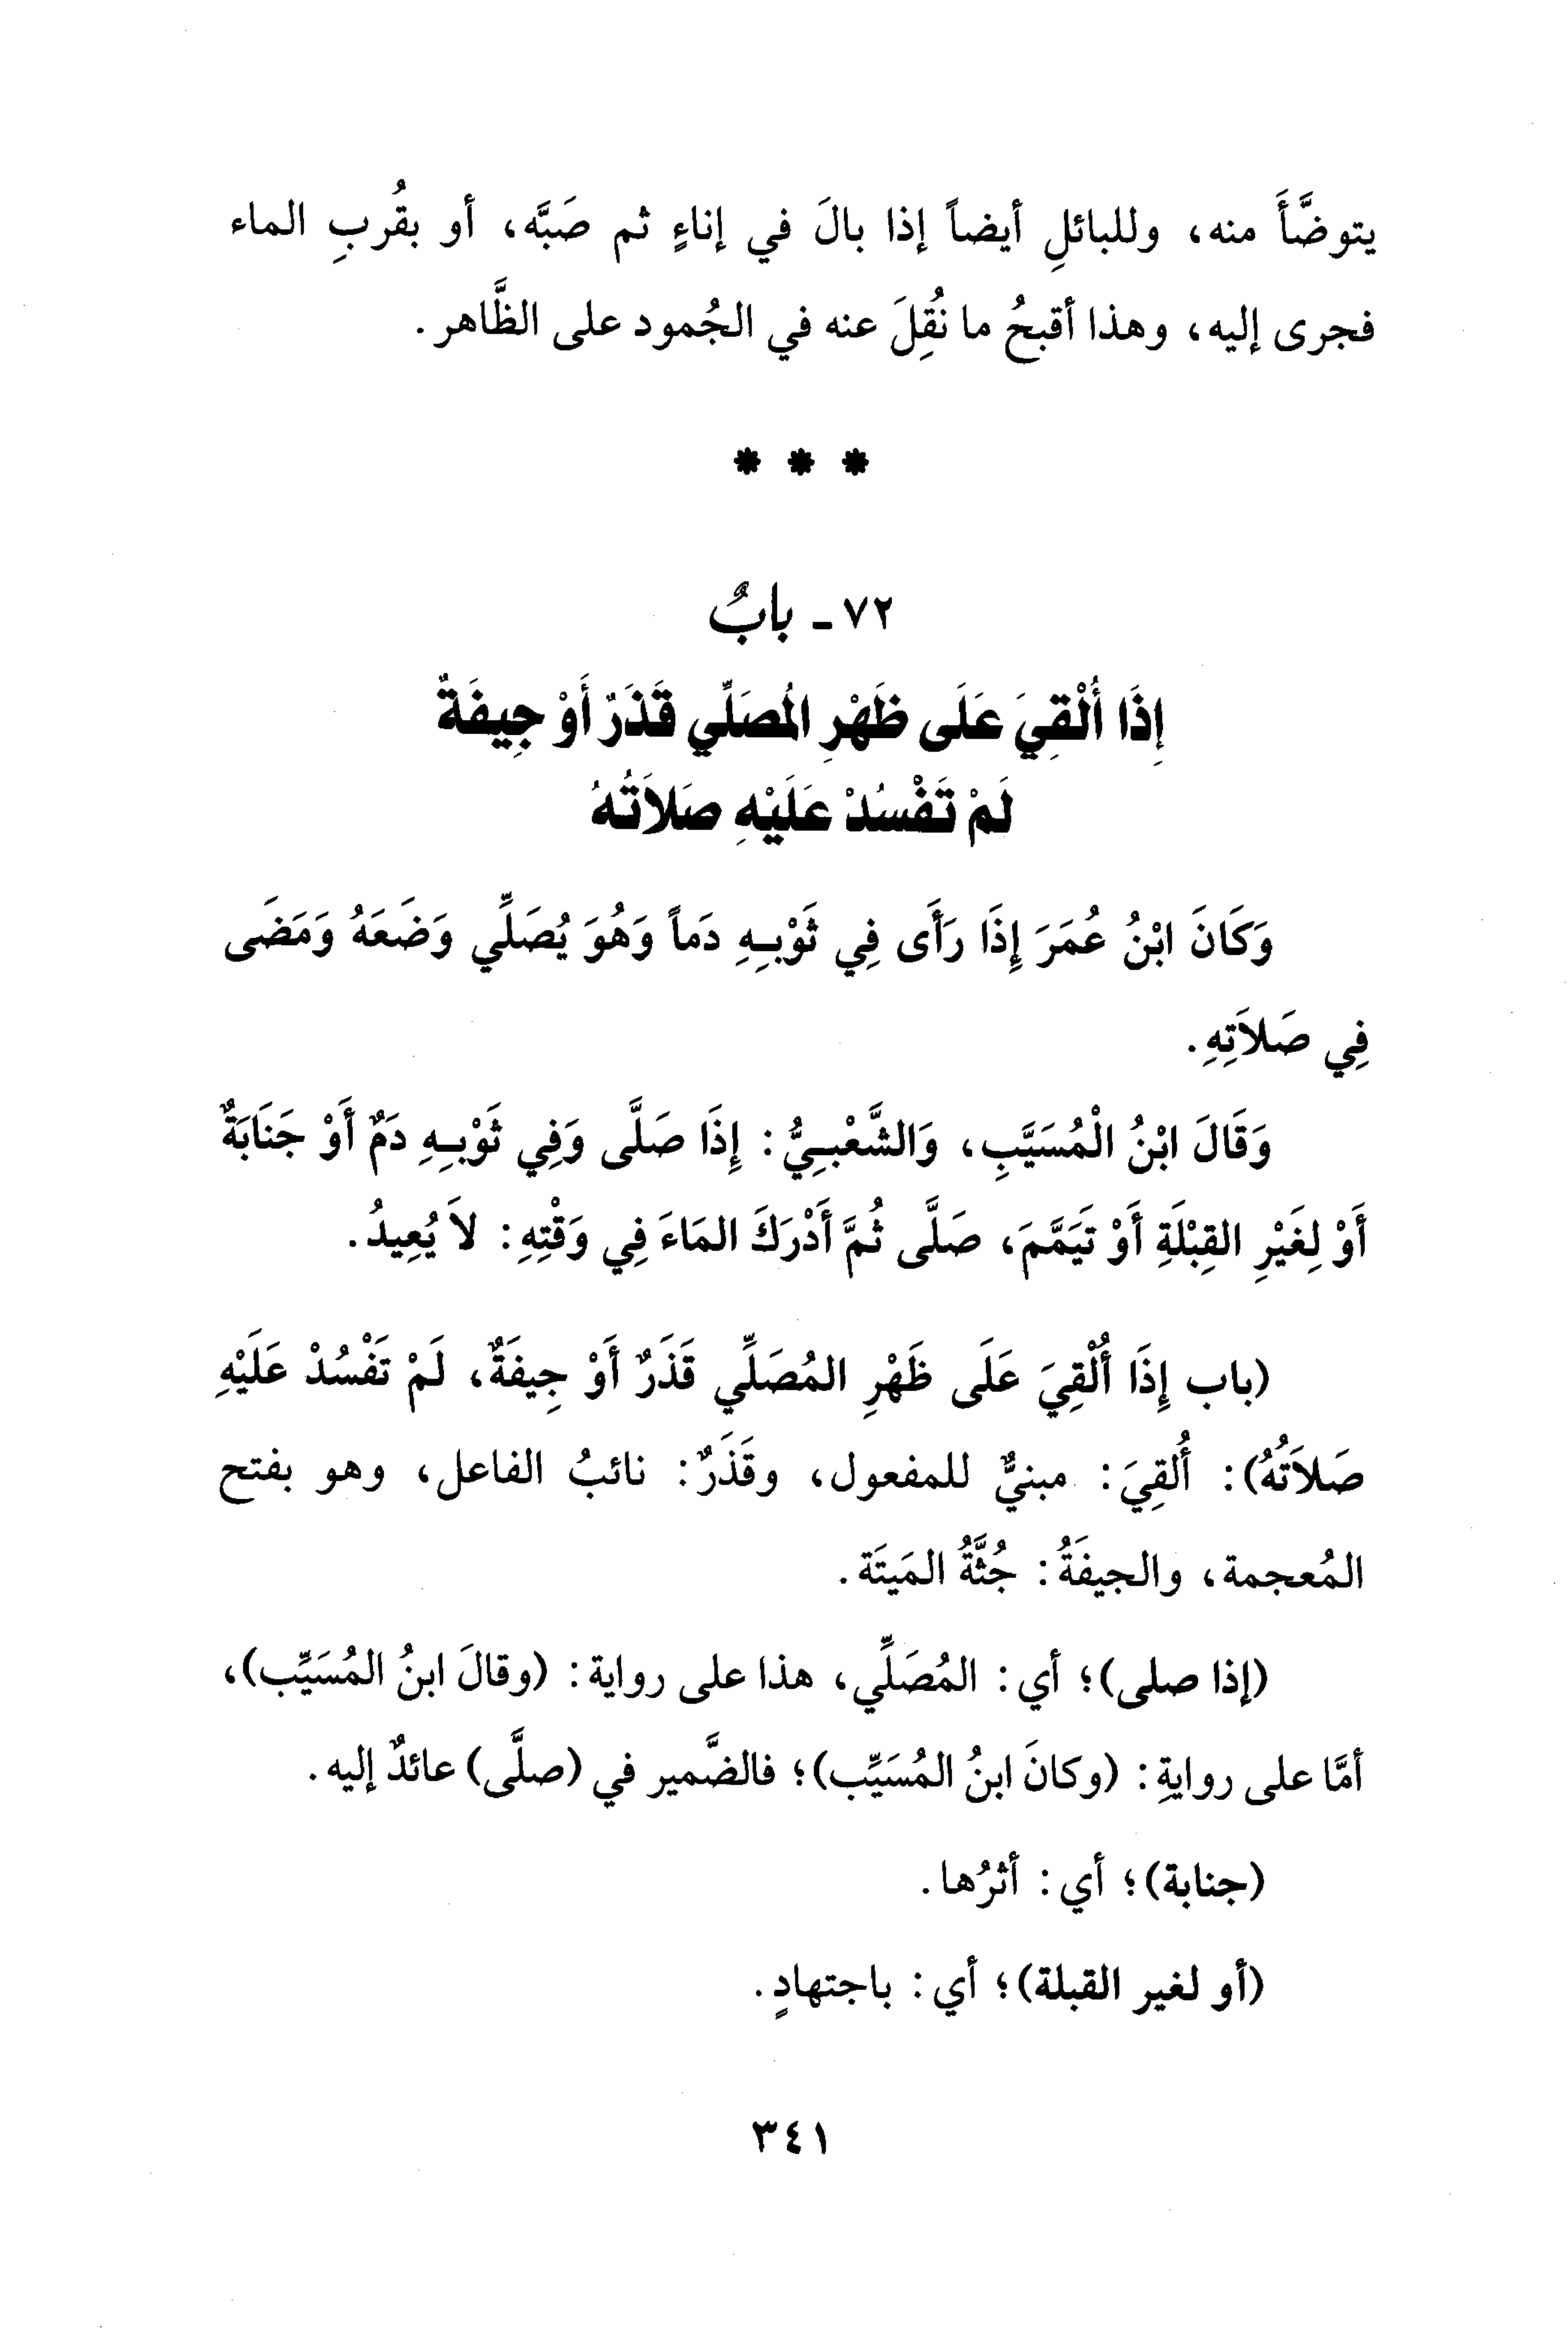 يتوضَّأَ منه، وللبائلِ أيضاً إذا بالَ في إناءٍ ثم صَبَّه، أو بقُربِ الماء
فجرى إليه، وهذا أقبحُ ما نُقِلَ عنه في الجُمود على الظَّاهر.
* * *
٧٢ - بابٌ
إِذَا أُلْقِيَ عَلَى ظَهْرِ المُصَلِّي قَذَرٌ أَوْ جِيفَةٌ
لَمْ تَفْسُدْ عَلَيْهِ صَلاَتُهُ
وَكَانَ ابْنُ عُمَرَ إِذَا رَأَى فِي ثَوْبِهِ دَماً وَهُوَ يُصَلِّي وَضَعَهُ وَمَضَى
فِي صَلاَتِهِ.
وَقَالَ ابْنُ الْمُسَيَّبِ، وَالشَّعْبِيُّ: إِذَا صَلَّى وَفِي ثَوْبِهِ دَمٌ أَوْ جَنَابَةٌ
أَوْ لِغَيْرِ القِبْلَةِ أَوْ تَيَمَّمَ، صَلَّى ثُمَّ أَدْرَكَ المَاءَ فِي وَقْتِهِ: لاَ يُعِيدُ.
(باب إِذَا أُلْقِيَ عَلَى ظَهْرِ المُصَلِّي قَذَرٌ أَوْ جِيفَةٌ، لَمْ تَفْسُدْ عَلَيْهِ
صَلاَتُهُ): أُلقِيَ: مبنيٌّ للمفعول، وقَذَرٌ: نائبُ الفاعل، وهو بفتح
المُعجمة، والجيفَةُ: جُثَّةُ المَيتَة.
(إذا صلى)؛ أي: المُصَلِّي، هذا على رواية: (وقالَ ابنُ المُسَيِّب)،
أمَّا على روايةِ: (وكانَ ابنُ المُسَيِّب)؛ فالضَّمير في (صلَّى) عائدٌ إليه.
(جنابة)؛ أي: أثرُها.
(أو لغير القبلة)؛ أي: باجتهادٍ.
٣٤١